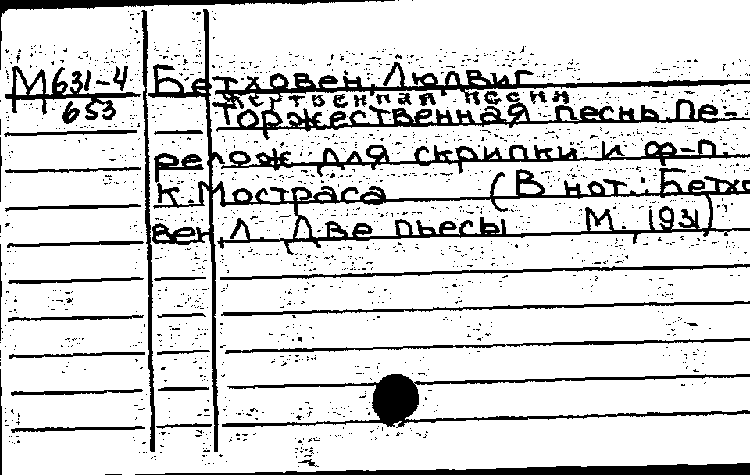 М 631-4 Бетховен, Людвиг
653
Торжественная песнь. Пе-
релож. для скрипки и ф-п.
К. Мостраса (В нот.: Бетхо
вен, Л. Две пьесы М., 1931)